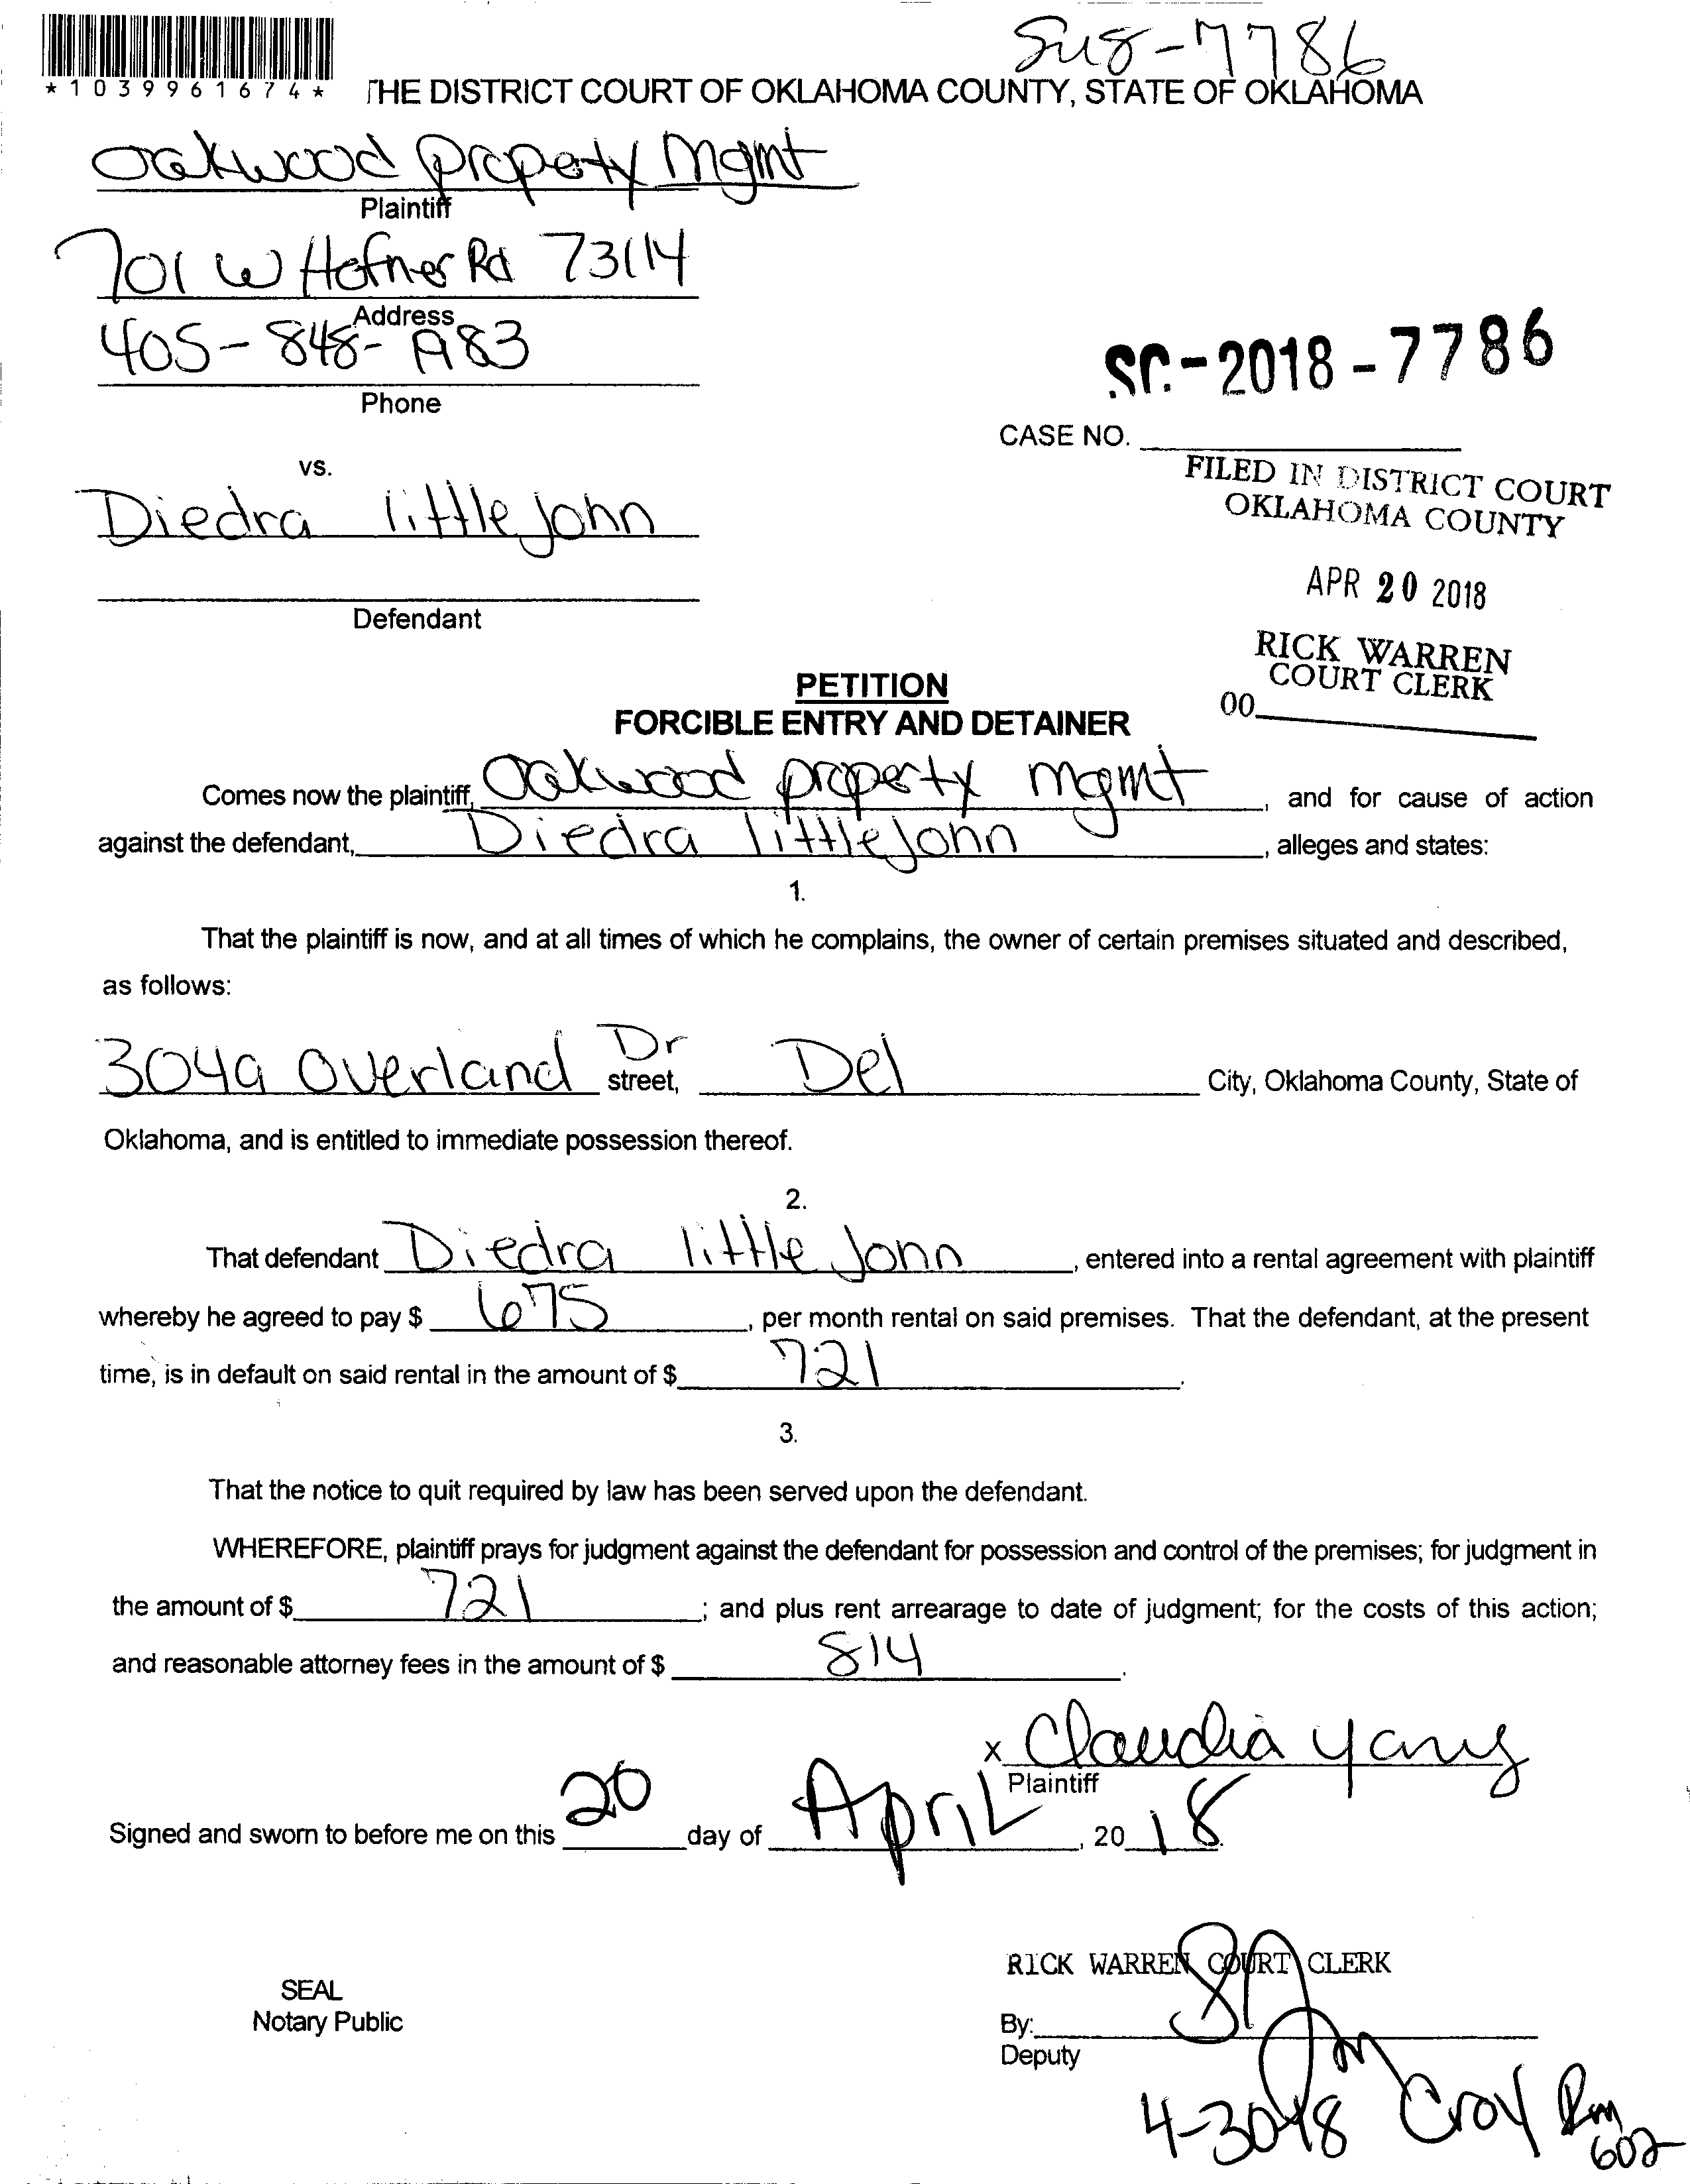 SC18-7786
*1039961674*
THE DISTRICT COURT OF OKLAHOMA COUNTY, STATE OF OKLAHOMA
Oakwood Property Mgmt
Plaintiff
701 W Hefner Rd 73114
Address
405-848-1983
Phone
SC-2018-7786
CASE NO.
vs.
FILED IN DISTRICT COURT
OKLAHOMA COUNTY
Diedra littleJohn
APR 20 2018
Defendant
RICK WARREN
COURT CLERK
00
PETITION
FORCIBLE ENTRY AND DETAINER
Comes now the plaintiff, Oakwood property mgmt, and for cause of action
against the defendant, Diedra littleJohn, alleges and states:
1.
That the plaintiff is now, and at all times of which he complains, the owner of certain premises situated and described,
as follows:
3049 Overland Dr street, Del City, Oklahoma County, State of
Oklahoma, and is entitled to immediate possession thereof.
2.
That defendant Diedra little John, entered into a rental agreement with plaintiff
whereby he agreed to pay $ 675, per month rental on said premises. That the defendant, at the present
time, is in default on said rental in the amount of $ 721.
3.
That the notice to quit required by law has been served upon the defendant.
WHEREFORE, plaintiff prays for judgment against the defendant for possession and control of the premises; for judgment in
the amount of $ 721; and plus rent arrearage to date of judgment; for the costs of this action;
and reasonable attorney fees in the amount of $ 814.
x Claudia Yany
Plaintiff
Signed and sworn to before me on this 20 day of April, 2018.
RICK WARREN COURT CLERK
SEAL
Notary Public
By:
Deputy
4-30-18 Croy Rm
602